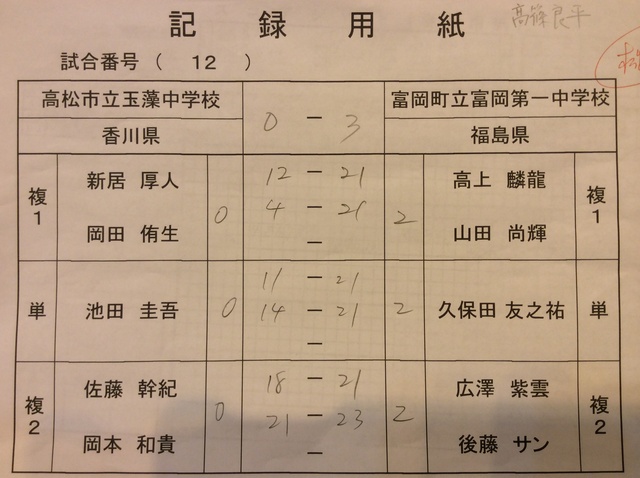 記録用紙
高篠良平
試合番号( 12 )
高松市立玉藻中学校 0 − 3 富岡町立富岡第一中学校
香川県 福島県
複1 新居 厚人 岡田 侑生 0 12 − 21 2 高上 麟龍 山田 尚輝 複1
4 − 21
−
単 池田 圭吾 0 11 − 21 2 久保田 友之祐 単
14 − 21
−
複2 佐藤 幹紀 岡本 和貴 0 18 − 21 2 広澤 紫雲 後藤 サン 複2
21 − 23
−